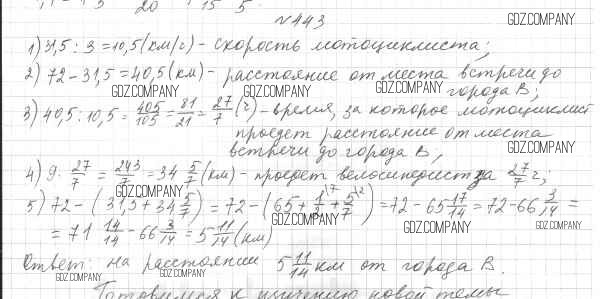 20 15 5.
№443
1) 31,5 : 3 = 10,5 (км/ч) - скорость мотоциклиста;
2) 72 - 31,5 = 40,5 (км) - расстояние от места встречи до
города В;
3) 40,5 : 10,5 = 405/105 = 81/21 = 27/7 (ч) - время, за которое мотоциклист
проедет расстояние от места
встречи до города В;
4) 9 · 27/7 = 243/7 = 34 5/7 (км) - проедет велосипедист за 27/7 ч;
5) 72 - (31,5 + 34 5/7) = 72 - (65 + 1/2 + 5/7) = 72 - 65 17/14 = 72 - 66 3/14 =
= 71 14/14 - 66 3/14 = 5 11/14 (км)
Ответ: на расстоянии 5 11/14 км от города В.
Готовимся к изучению новой темы
GDZ.COMPANY
GDZ.COMPANY
GDZ.COMPANY
GDZ.COMPANY
GDZ.COMPANY
GDZ.COMPANY
GDZ.COMPANY
GDZ.COMPANY
GDZ.COMPANY
GDZ.COMPANY
GDZ.COMPANY